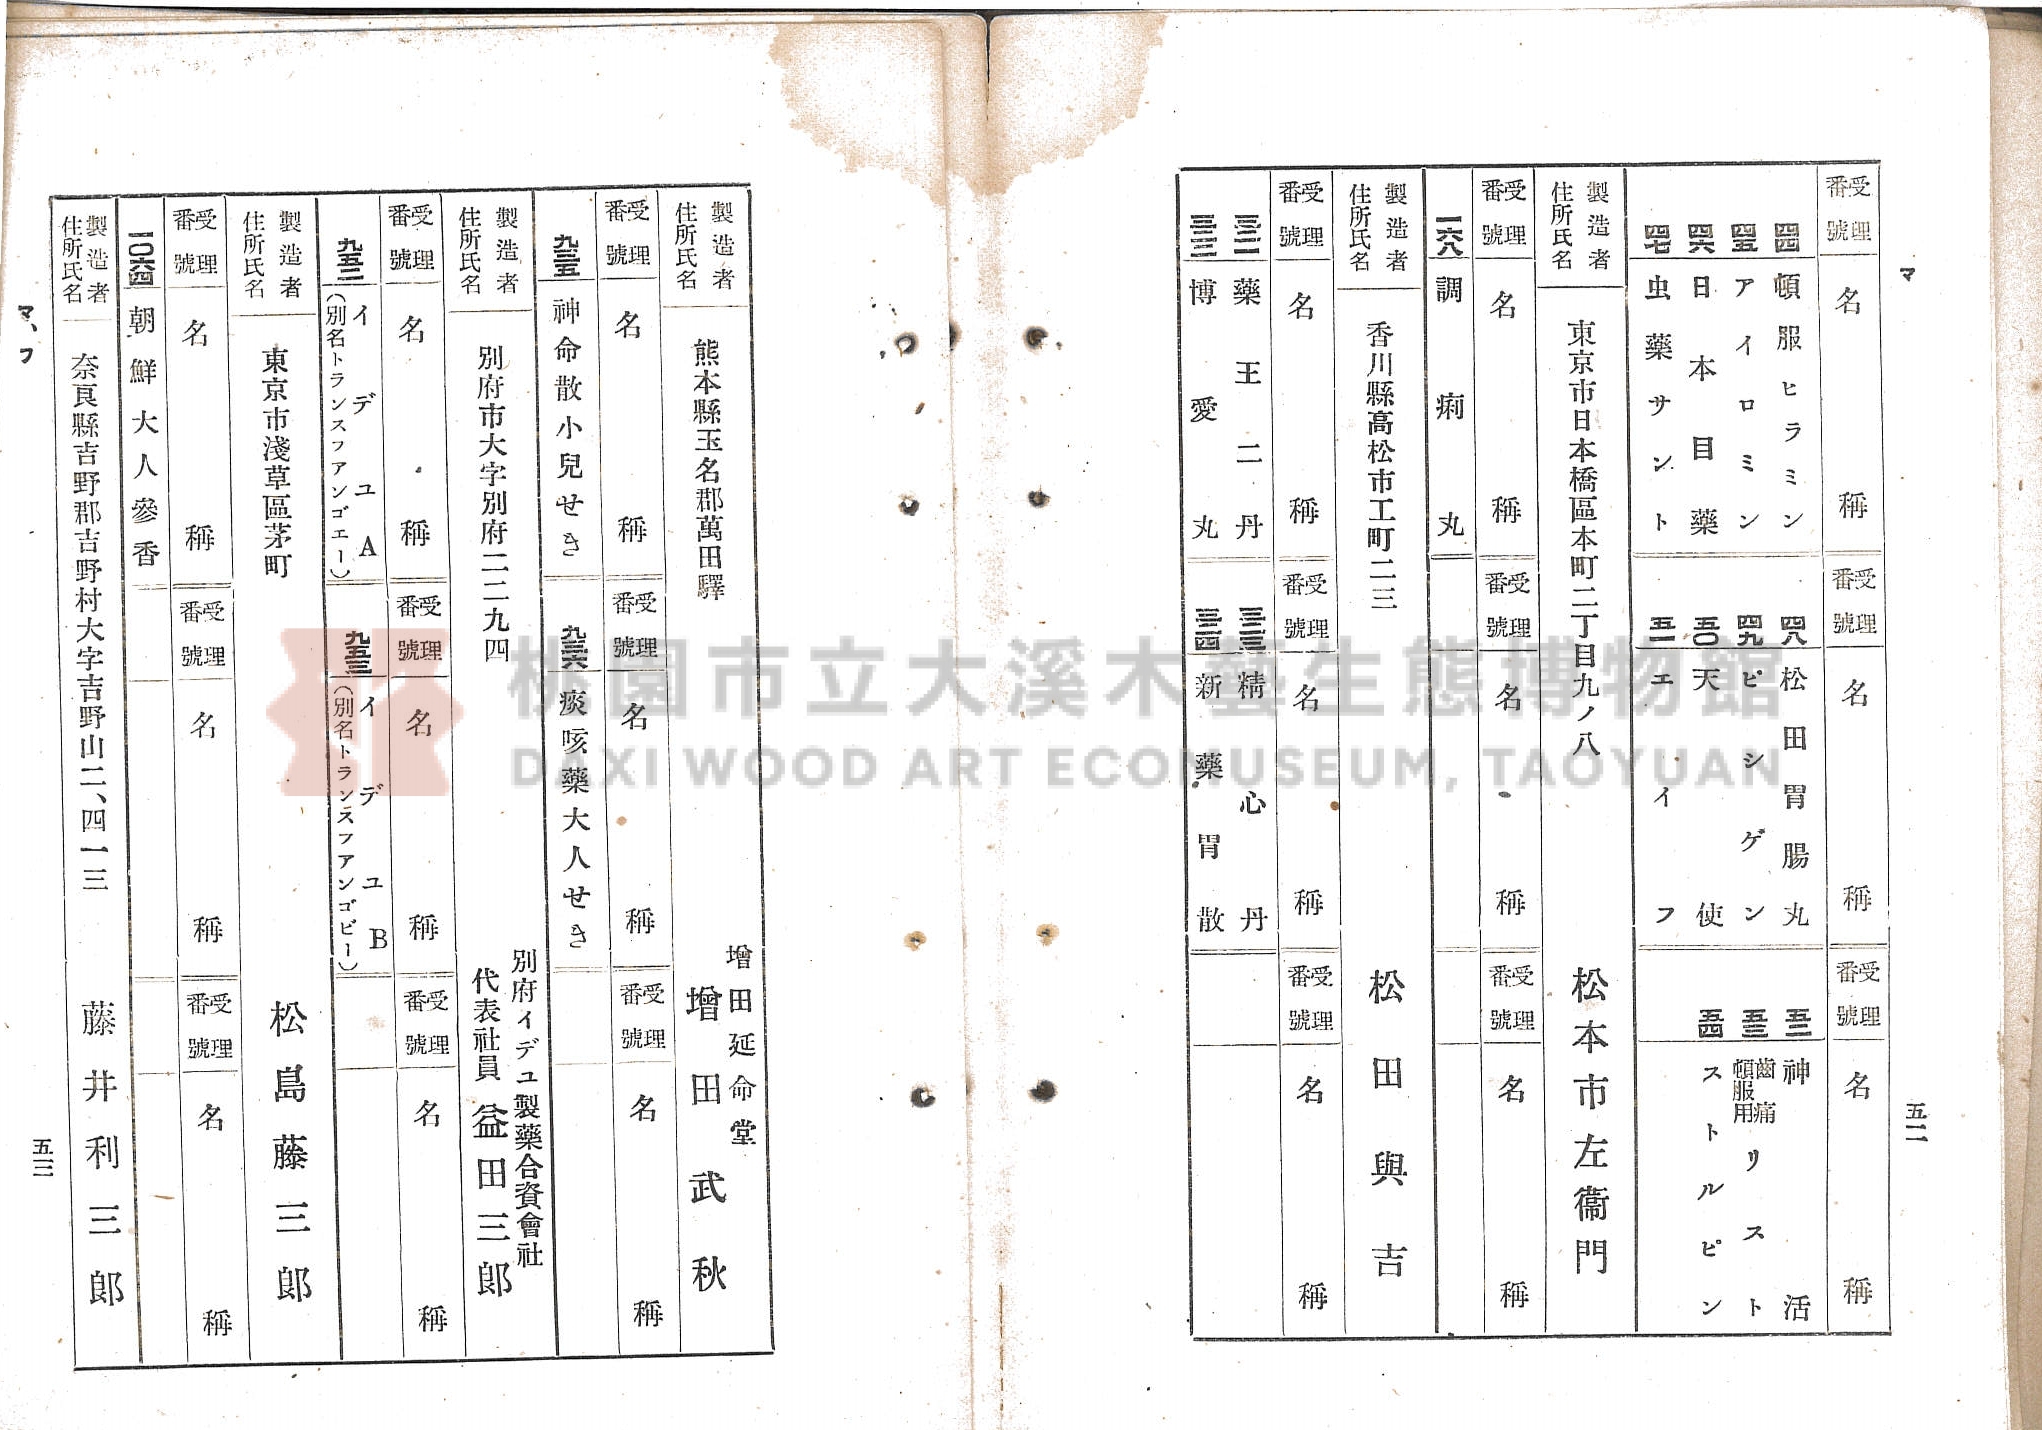 マ
五二
受理番號 名稱 受理番號 名稱 受理番號 名稱
四四 頓服ヒラミン 四八 松田胃腸丸 五二 神活
四五 アイロミン 四九 ピシゲン 五三 齒痛頓服用リスト
四六 日本目藥 五〇 天使 五四 ストルピン
四七 虫藥サント 五一 エイフ
製造者住所氏名 東京市日本橋區本町二丁目九ノ八 松本市左衞門
受理番號 名稱 受理番號 名稱 受理番號 名稱
一六八 調痢丸
製造者住所氏名 香川縣高松市工町二三 松田與吉
受理番號 名稱 受理番號 名稱 受理番號 名稱
藥王二丹 精心丹
博愛丸 新藥胃散
製造者住所氏名 熊本縣玉名郡萬田驛 增田延命堂 增田武秋
受理番號 名稱 受理番號 名稱 受理番號 名稱
九三五 神命散小兒せき 九三六 痰咳藥大人せき
製造者住所氏名 別府市大字別府二二九四 別府イデユ製藥合資會社 代表社員 益田三郎
受理番號 名稱 受理番號 名稱 受理番號 名稱
九五二 イデユA (別名トランスフアンゴエー) 九五三 イデユB (別名トランスフアンゴビー)
製造者住所氏名 東京市淺草區茅町 松島藤三郎
受理番號 名稱 受理番號 名稱 受理番號 名稱
一〇六四 朝鮮大人參香
製造者住所氏名 奈良縣吉野郡吉野村大字吉野山二、四一三 藤井利三郎
マ、フ
五三
桃園市立大溪木藝生態博物館
DAXI WOOD ART ECOMUSEUM, TAOYUAN